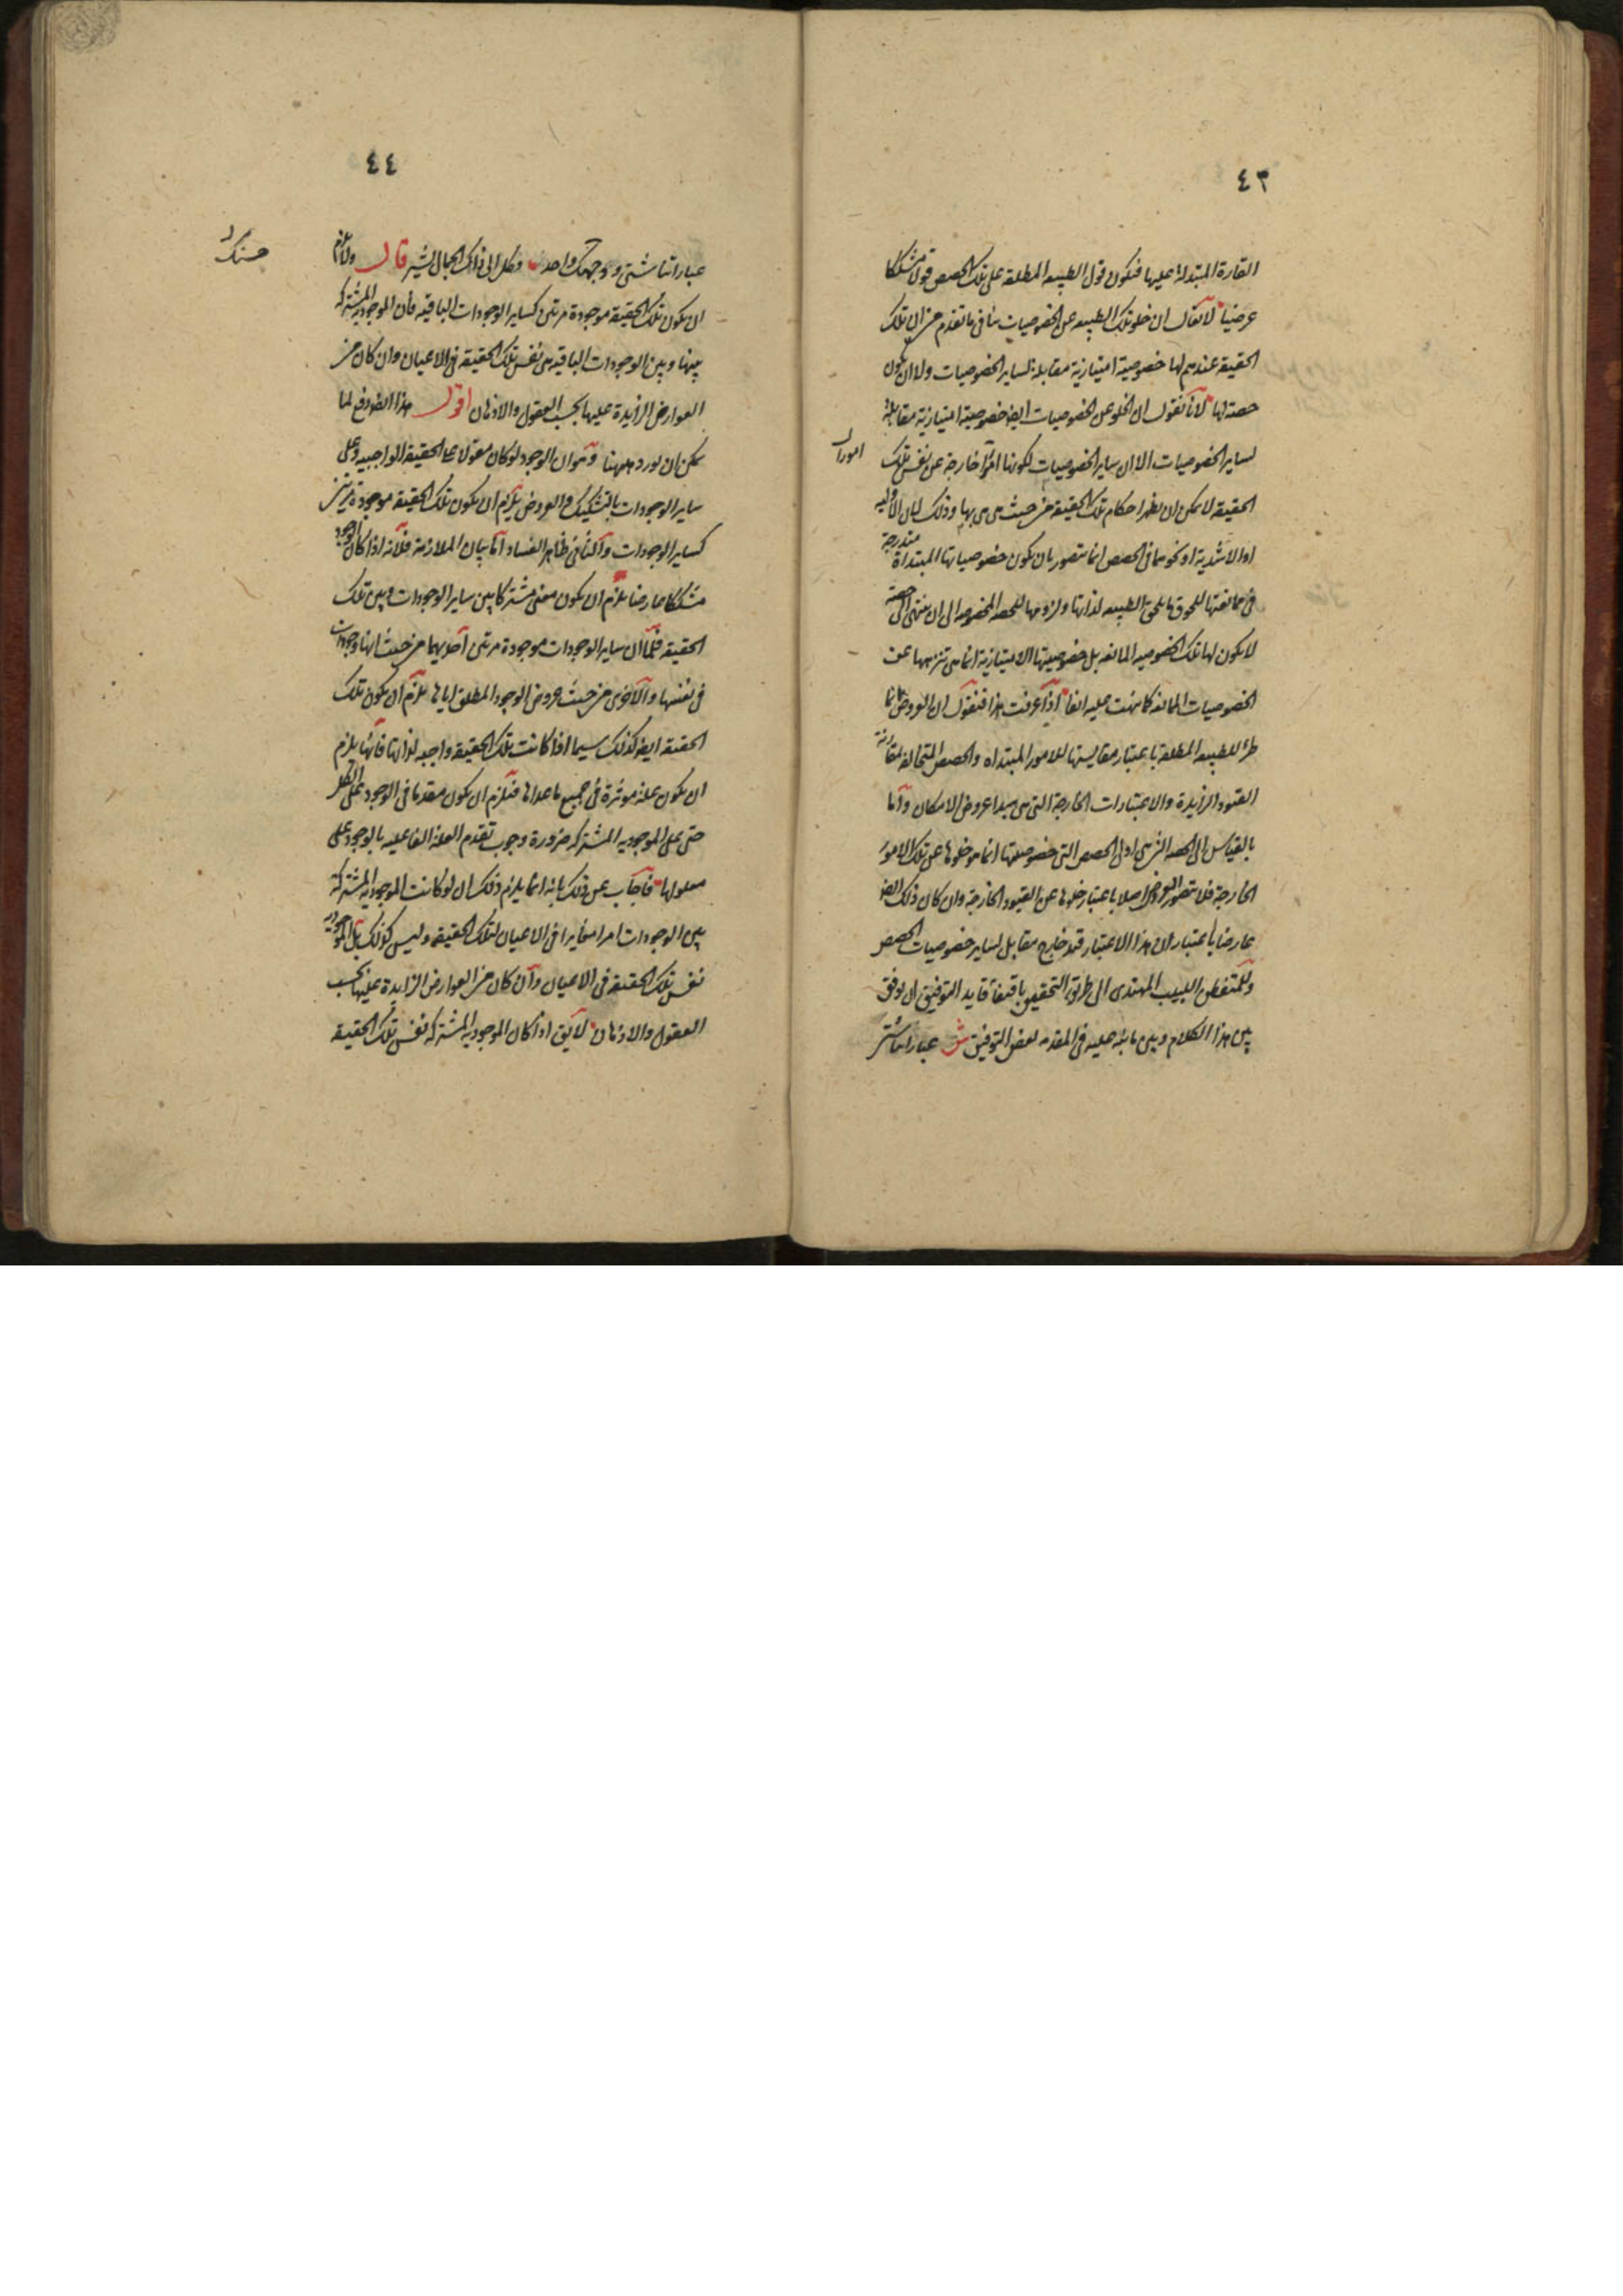 ٤٣
القارة المبتدلة عليها فتكون قول الطبيعه المطلقه على تلك الحصص قولا مشككا
عرضيا لا يقال ان خلو تلك الطبيعه عن الخصوصيات ينافى ما تقدم من ان تلك
الحقيقة عندهم لها خصوصية امتيازية مقابلة لساير الخصوصيات ولا ان يكون
حصة لها لانا نقول ان الخلو عن الخصوصيات ايضا خصوصية امتيازية مقابلة
لساير الخصوصيات الا ان ساير الخصوصيات لكونها امرا خارجة عن نفس تلك
امورا
الحقيقة لا يمكن ان يظهر احكام تلك الحقيقة من حيث هى هى بها وذلك لان الاوليه
او الاشدية او نحوهما فى الحصص انما يتصور بان يكون خصوصياتها المبتداة مندرجة
فى ممانعتها للحوق ما يلحق الطبيعه لذاتها ولزومها للحصه المخصوصه الى ان ينتهى الى حصة
لا يكون لها تلك الخصوصيه المانعه بل خصوصيتها الامتيازية انما هى تنزهها عن
الخصوصيات المانعه كما نبهت عليه انفا اذا عرفت هذا فنقول ان العروض انما
طرا للطبيعه المطلقة باعتبار مقايستها للامور المبتداه والحصص المتخالفه مقارنة
القيود الزايدة والاعتبارات الخارجة التى هى مبدا عروض الامكان واما
بالقياس الى الحصه التى هى اولى الحصص التى خصوصيتها انما هو خلوها عن تلك الامور
الخارجة فلا يتصور العروض اصلا باعتبار خلوها عن القيود الخارجة وان كان ذلك ايضا
عارضا باعتبار لان هذا الاعتبار قيد خارج مقابل لساير خصوصيات الحصص
وللمتفطن اللبيب المهتدى الى طريق التحقيق باقتفاء قايد التوفيق ان يوفق
بين هذا الكلام وبين ما نبه عليه فى المقدمه لبعض التوفيق ش عباراتنا شتى
٤٤
عباراتنا شتى ووجهك واحد وكل الى ذاك الجمال يشير قال ولا يلزم
حسنك
ان يكون تلك الحقيقة موجودة مرتين كساير الوجودات الباقيه فان الموجوديه المشتركه
بينها وبين الوجودات الباقيه هى نفس تلك الحقيقة فى الاعيان وان كان من
العوارض الزايدة عليها بحسب العقول والاذهان اقول هذا ايضا دفع لما
يمكن ان يورد ههنا وهو ان الوجود لو كان مقولا على الحقيقة الواجبيه وعلى
ساير الوجودات بالتشكيك والعروض يلزم ان يكون تلك الحقيقه موجودة مرتين
كساير الوجودات والثانى ظاهر الفساد اما بيان الملازمة فلانه اذا كان الوجود
مشككا عارضا يلزم ان يكون معنى مشتركا بين ساير الوجودات وبين تلك
الحقيقه فكما ان ساير الوجودات موجودة مرتين احديهما من حيث انها وجودات
فى نفسها والاخرى من حيث عروض الوجود المطلق اياها يلزم ان يكون تلك
الحقيقه ايضا كذلك سيما اذا كانت تلك الحقيقه واجبه لذاتها فانها يلزم
ان يكون علة موثرة فى جميع ماعداها فيلزم ان يكون مقدما فى الوجود على الكل
حتى على الموجوديه المشتركه ضرورة وجوب تقدم العلة الفاعليه بالوجود على
معلولها فاجاب عن ذلك بانه انما يلزم ذلك ان لو كانت الموجوديه المشتركة
بين الوجودات امرا مغايرا فى الاعيان لتلك الحقيقه وليس كذلك بل الموجوديه
نفس تلك الحقيقه فى الاعيان وان كان من العوارض الزايدة عليها بحسب
العقول والاذهان لا يق اذا كان الموجوديه المشتركه نفس تلك الحقيقه